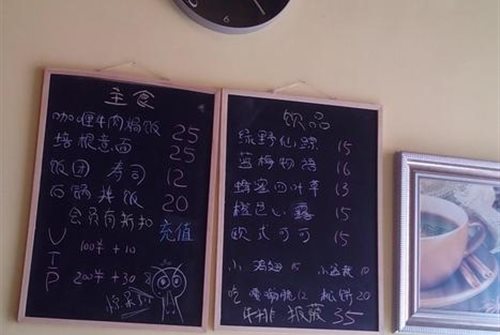 主食
咖喱牛肉焗饭 25
培根意面 25
饭团 寿司 12
石锅拌饭 20
会员有折扣 充值
V 100半 + 10
I
P 200半 + 30
饮品
绿野仙踪 15
蓝梅物语 16
蜂蜜四叶草 13
橙色心露 15
欧式可可 15
小 鸡翅 5 小 10
吃 脆 12 松饼 20
牛排 披萨 35